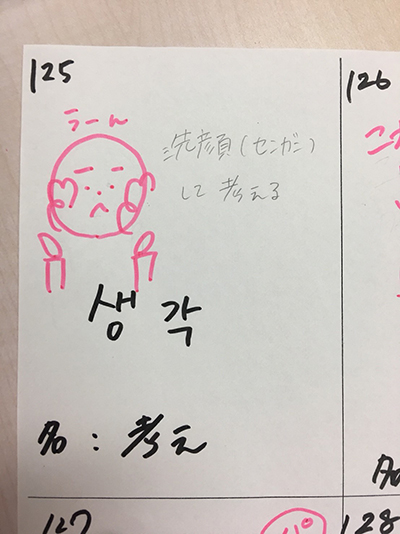 125
126
うーん
洗顔(センガン)
して考える
생각
名:考え
127
128